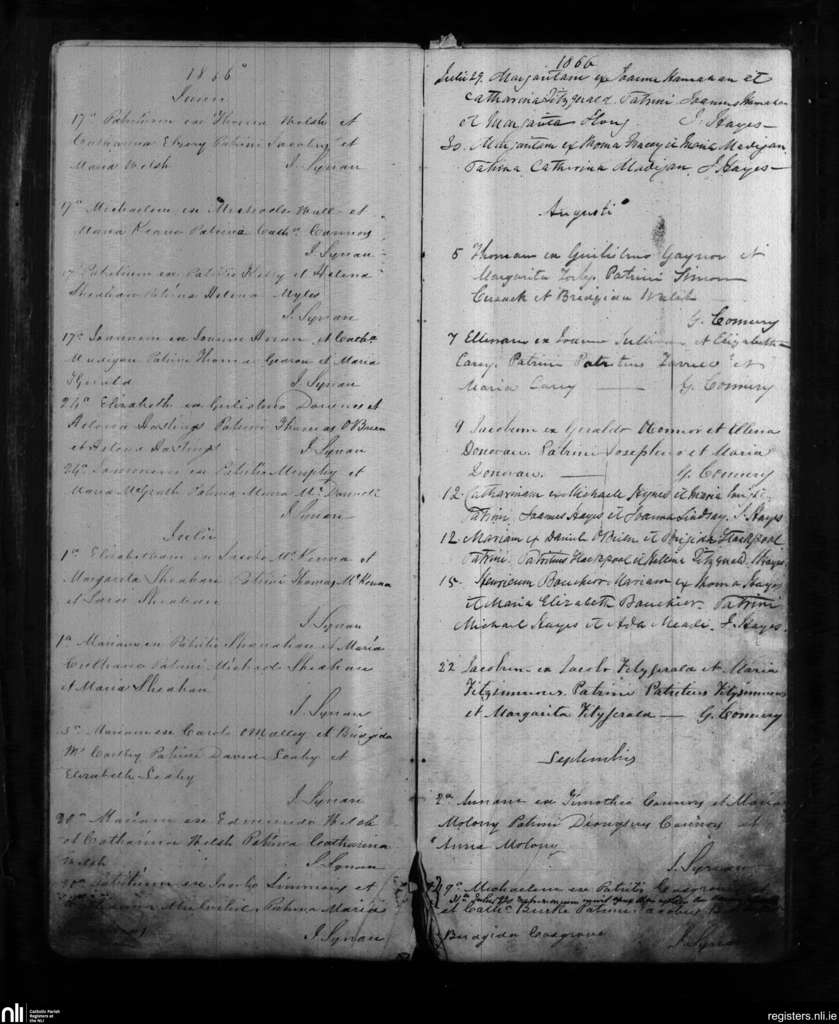 1866
Junii
17a Patritium ex Thoma Welsh et
Catharina Patrini Jacobus et
Maria Welsh J. Synan
17a Michaelem ex Michaele Wall et
Maria Keane Patrina Cathe Connors
J. Synan
17 Patritium ex Patritio Kelly et Helena
Sheahan Patrina Helena Myles
J. Synan
17a Joannem ex Joanne Horan et Catha
Madigan Patrini Thoma et Maria
J. Synan
24a Elizabeth ex Gulielmo Downes et
Helena Hastings Patrini Thomas O'Brien
et Helena Hastings J. Synan
24a Joannem ex Patritio Murphy et
Maria McGrath Patrina Maria
J. Synan
Julii
1a Elizabetham ex Jacobo McKenna et
Margarita Sheahan Patrini Thomas McKenna
et Sheahan
J. Synan
1a Mariam ex Patritio Shanahan et Maria
Patrini Michael Sheahan
et Maria Sheahan
J. Synan
Mariam ex Carolo OMalley et Bridgida
Mc Patrini David Leahy et
Elizabeth Leahy
J. Synan
20a Mariam ex Edmundo Welsh
et Catharina Welsh Patrina Catharina
Welsh J. Synan
Patritium ex Jacobo Simmons et
Patrina Maria
J. Synan
1866
Julii 29. Margaritam ex Joanne Hanrahan et
Catharina Fitzgerald Patrini Joannes Hanrahan
et Margarita J. Hayes-
30. Margaritam ex Thoma Tracey et Maria Madigan.
Patrina Catherina Madigan. J. Hayes-
Augusti
5 Thomam ex Gulielmo Gaynor et
Margarita Patrini Simon
Cusack et Bridgida Walsh
G. Connery
7 Ellenam ex Joanne Sullivan et Elizabetha
Carey. Patrini Patritius et
Maria Carey G. Connery
9 Jacobum ex Geraldo OConnor et Ellena
Donovan. Patrini Josephus et Maria
Donovan. G. Connery
12. Catharinam ex Michaele Hynes et Maria
Patrini Joannes Hayes et Joanna Lindsay. J. Hayes
12. Mariam ex Daniele O'Brien et Brigida Stackpool
Patrini. Patritius Stackpool et Hellena Fitzgerald. J Hayes
15. Henricum Bouchier Mariam ex Thoma Hayes
et Maria Elizabeth Bouchier. Patrini
Michael Hayes et Ada Meade. J. Hayes.
22 Jacobum ex Jacobo Fitzgerald et Maria
Fitzsimmons. Patrini Patritius Fitzsimmons
et Margarita Fitzgerald G. Connery
Septembris
2a Annam ex Timotheo Connors et Maria
Molony Patrini Dionysius Connors et
Anna Molony
J. Synan
9a Michaelem ex Patritio Cosgrove et
et Cathe Burke Patrini Jacobus
Bridgida Cosgrove J. Synan
nli
Catholic Parish
Registers at
the NLI
registers.nli.ie